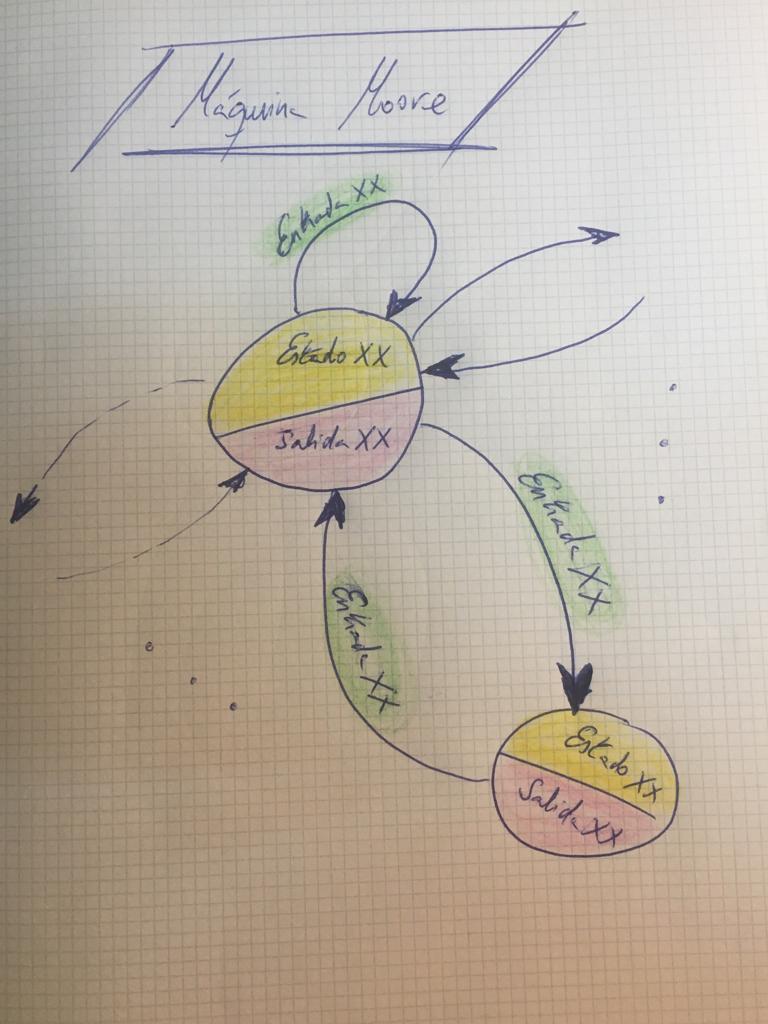 Máquina Moore
Entrada XX
Estado XX
Salida XX
Entrada XX
Entrada XX
Estado XX
Salida XX